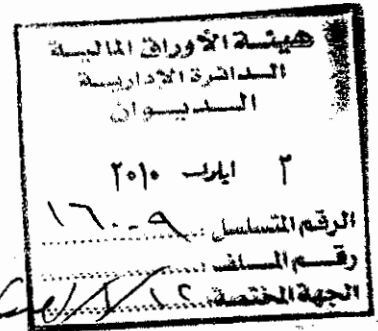 هيئة الأوراق المالية
الدائرة الإدارية
الديوان
٢ ايلول ٢٠١٠
الرقم المتسلسل ١٦٠٠٩
رقم الملف
الجهة المختصة